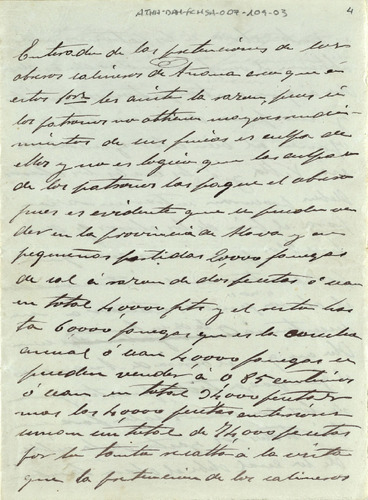 ATHA-DAH-FCHSA-007-109-03
4
Enterados de las pretenciones de los
obreros salineros de Anana creo que en
estos les asiste la razon, pues si
los patronos no obtienen mayores rendi-
mientos de sus fincas es culpa de
ellos y no es logico que las culpas
de los patronos las pague el obrero
pues es evidente que se pueden ven
der en la provincia de Alava y en
pequeñas partidas 20,000 fanegas
de sal á razon de dos pesetas ó sean
un total 40000 pts y el resto has
ta 60,000 fanegas que es la cosecha
annual ó sean 40000 fanegas se
pueden vender á 0,85 centimos
ó sean un total 34000 pesetas
mas las 40000 pesetas anteriores
suman un total de 74,000 pesetas
por lo tanto resalta á la vista
que la pretencion de los salineros